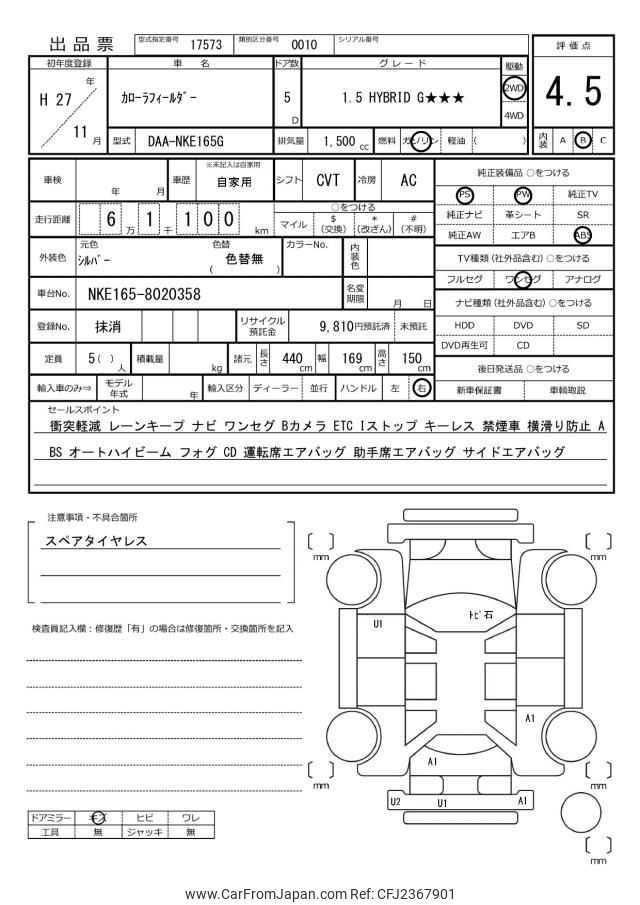 出品票
型式指定番号 17573 類別区分番号 0010 シリアル番号
評価点
初年度登録 車名 ドア数 グレード 駆動
H 27 年 ｶﾛｰﾗﾌｨｰﾙﾀﾞｰ 5 D 1.5 HYBRID G★★★ 2WD 4.5
11 月 4WD
型式 DAA-NKE165G 排気量 1,500 cc 燃料 ガソリン 軽油 ( ) 内装 A B C
車検 年 月 車歴 ※未記入は自家用 自家用 シフト CVT 冷房 AC 純正装備品 ○をつける
PS PW 純正TV
走行距離 6 万 1 千 1 0 0 km ○をつける 純正ナビ 革シート SR
マイル $(交換) *(改ざん) #(不明) 純正AW エアB ABS
外装色 元色 ｼﾙﾊﾞｰ 色替 ( 色替無 ) カラーNo. 内装色 TV種類 (社外品含む) ○をつける
フルセグ ワンセグ アナログ
車台No. NKE165-8020358 名変期限 月 日 ナビ種類 (社外品含む) ○をつける
登録No. 抹消 リサイクル預託金 9,810円預託済 未預託 HDD DVD SD
DVD再生可 CD
定員 5 ( ) 人 積載量 kg 諸元 長さ 440 cm 幅 169 cm 高さ 150 cm 後日発送品 ○をつける
輸入車のみ⇒ モデル年式 年 輸入区分 ディーラー 並行 ハンドル 左 右 新車保証書 車輌取説
セールスポイント
衝突軽減 レーンキープ ナビ ワンセグ Bカメラ ETC Iストップ キーレス 禁煙車 横滑り防止 A
BS オートハイビーム フォグ CD 運転席エアバッグ 助手席エアバッグ サイドエアバッグ
注意事項・不具合箇所
スペアタイヤレス
検査員記入欄：修復歴「有」の場合は修復箇所・交換箇所を記入
mm mm
ﾄﾋﾞ石
U1
A1
A1
mm mm
U2 U1 A1
mm
ドアミラー キズ ヒビ ワレ
工具 無 ジャッキ 無
www.CarFromJapan.com Ref: CFJ2367901